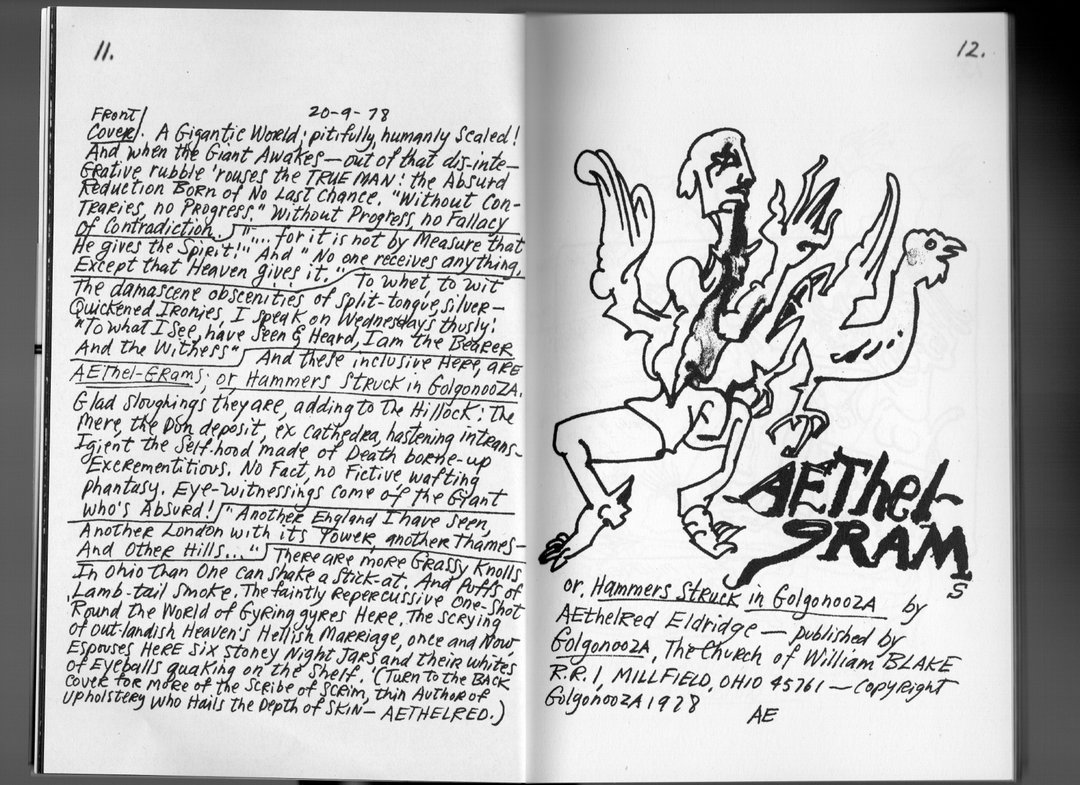 11.
Front/ 20-9-78
Cover/. A Gigantic World; pitifully, humanly Scaled!
And when the Giant Awakes — out of that dis-inte-
Grative rubble 'rouses the TRUE MAN: the Absurd
Reduction Born of No Last Chance. "Without Con-
Traries, no Progress." Without Progress, no Fallacy
of Contradiction. "... for it is not by Measure that
He gives the Spirit!" And "No one receives anything,
Except that Heaven gives it." To whet, to wit
The damascene obscenities of split-tongue, silver-
Quickened Ironies, I speak on Wednesdays thusly:
"To what I See, have Seen & Heard, I am the Bearer
And the Witness", And these inclusive Here, are
AEthel-Grams; or Hammers Struck in GolgonooZA.
Glad sloughings they are, adding to The Hillock: the
Mere, the Don deposit, ex cathedra, hastening intrans-
Igient the Self-hood made of Death borne-up
Excrementitious. No Fact, no Fictive wafting
phantasy. Eye-Witnessings come of the Giant
who's Absurd! "Another England I have Seen,
Another London with its Tower, another Thames-
And Other Hills..." There are more Grassy Knolls
In Ohio than One can shake a Stick-at. And Puffs of
Lamb-tail Smoke. The faintly Repercussive One-Shot
'Round the World of Gyring gyres Here. The scrying
of out-landish Heaven's Hellish Marriage, once and Now,
Espouses Here six stoney Night Jars and their whites
of Eyeballs quaking on the Shelf. (Turn to the BACK
Cover for more of the Scribe of Scrim, thin Author of
Upholstery who Hails the Depth of SKIN — AETHELRED.)
12.
AEThel-
gRAM
s
or, Hammers Struck in GolgonooZA by
AEthelRed Eldridge — published by
GolgonooZA, The Church of William BLAKE
R.R.1, MILLFIELD, OHIO 45761 — Copyright
GolgonooZA 1978 AE